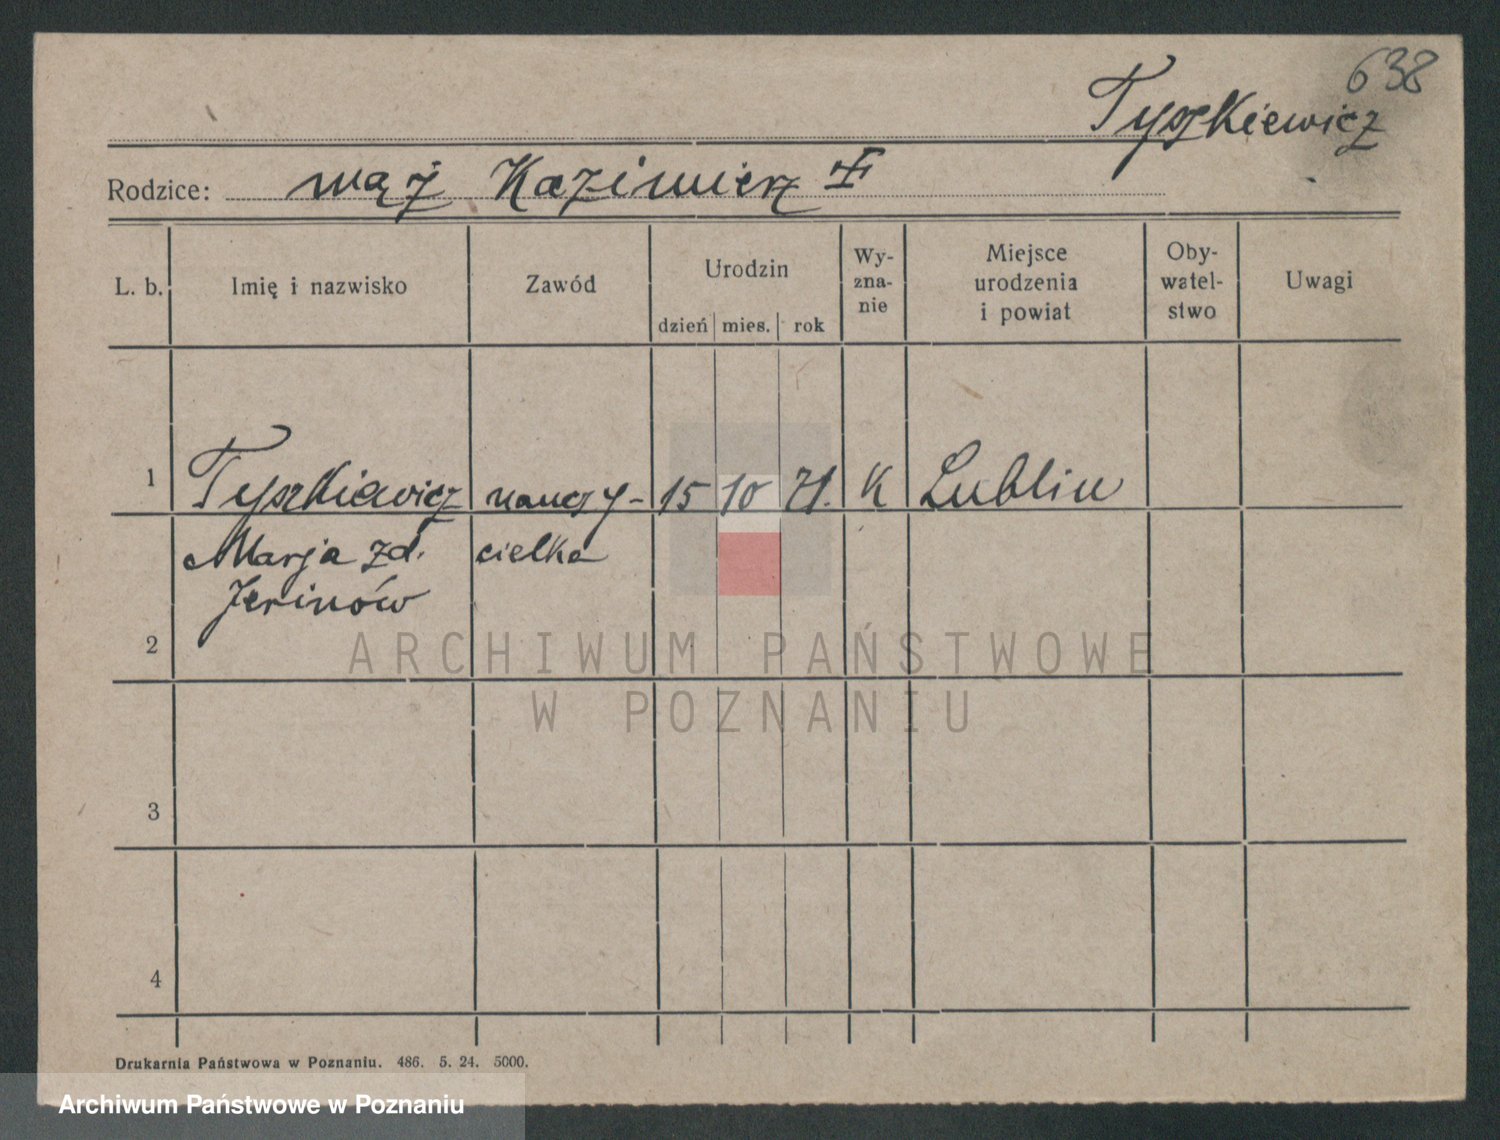 638
Tyszkiewicz
Rodzice: mąż Kazimierz
L. b. Imię i nazwisko Zawód Urodzin dzień mies. rok Wy- zna- nie Miejsce urodzenia i powiat Oby- watel- stwo Uwagi
1 Tyszkiewicz nauczy- 15 10 71. K Lublin
Marja zd. cielka
Jerinów
2
3
4
Drukarnia Państwowa w Poznaniu. 486. 5. 24. 5000.
ARCHIWUM PAŃSTWOWE
W POZNANIU
Archiwum Państwowe w Poznaniu